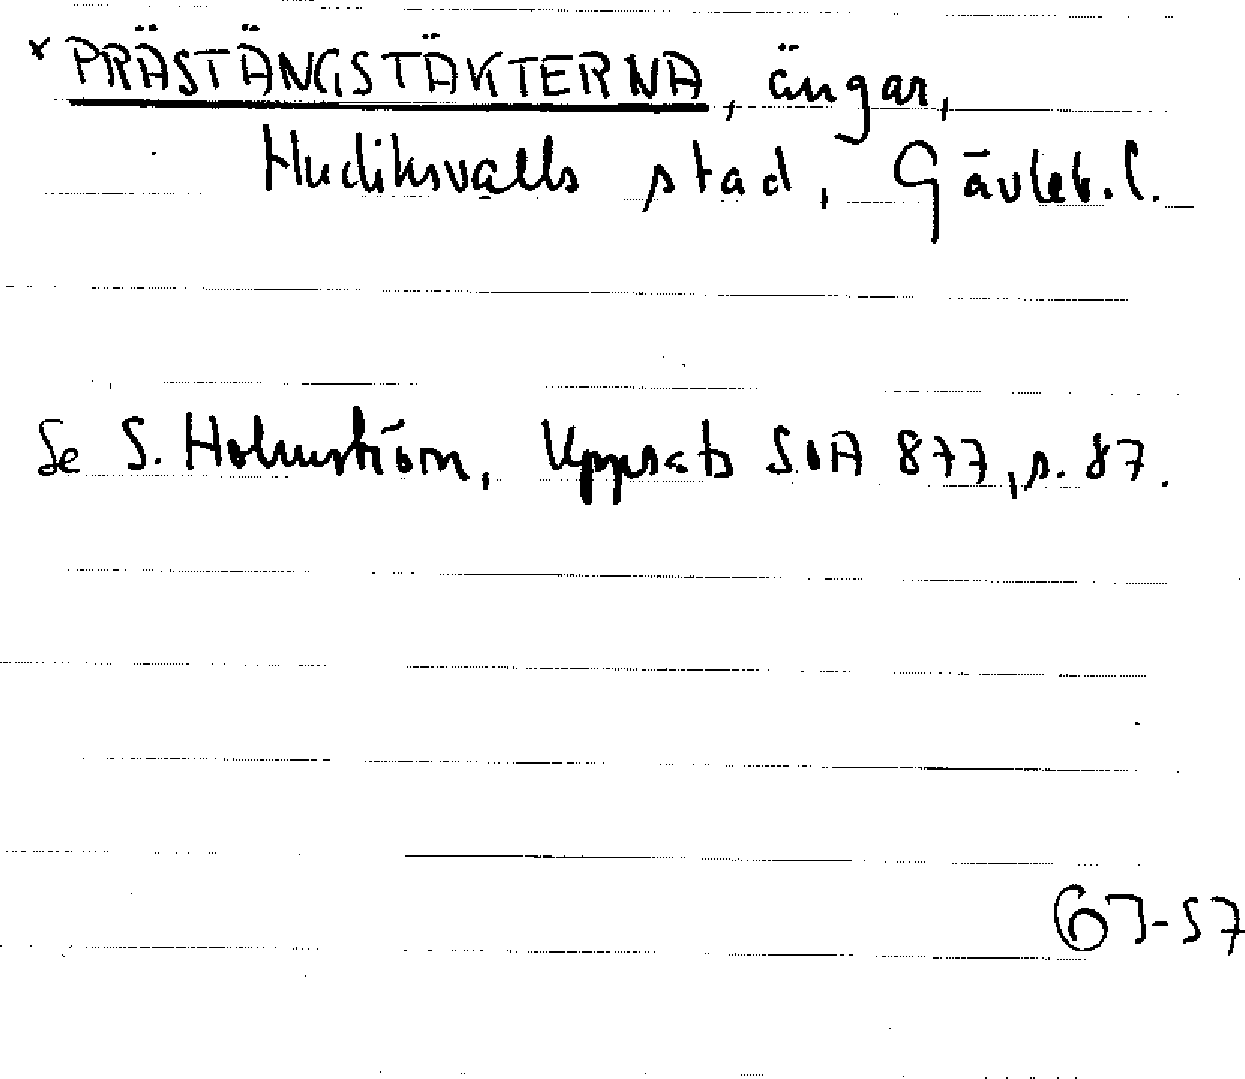 × PRÄSTÄNGSTÄKTERNA, ängar,
Hudiksvalls stad, Gävleb. l.
Se S. Holmström, Uppsats SOA 877, s. 87.
67-57